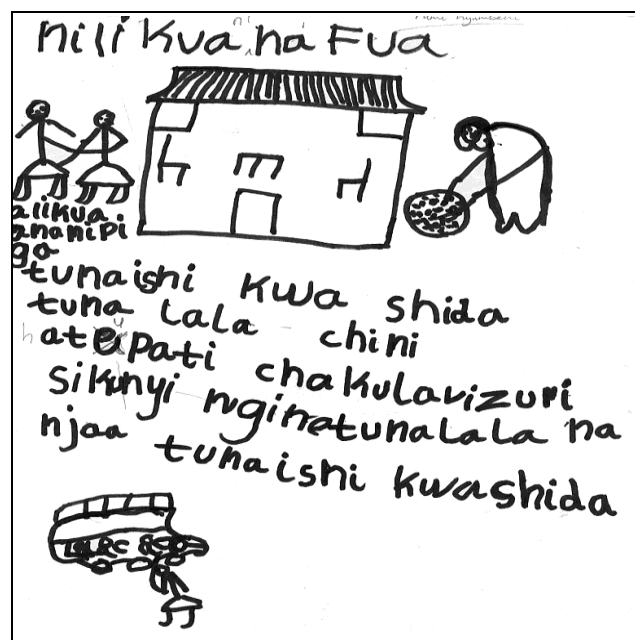 nilikua nafua
alikua
ananipi
ga
tunaishi kwa shida
tuna lala chini
hatupati chakulavizuri
sikunyi nginetunalala na
njaa tunaishi kwashida